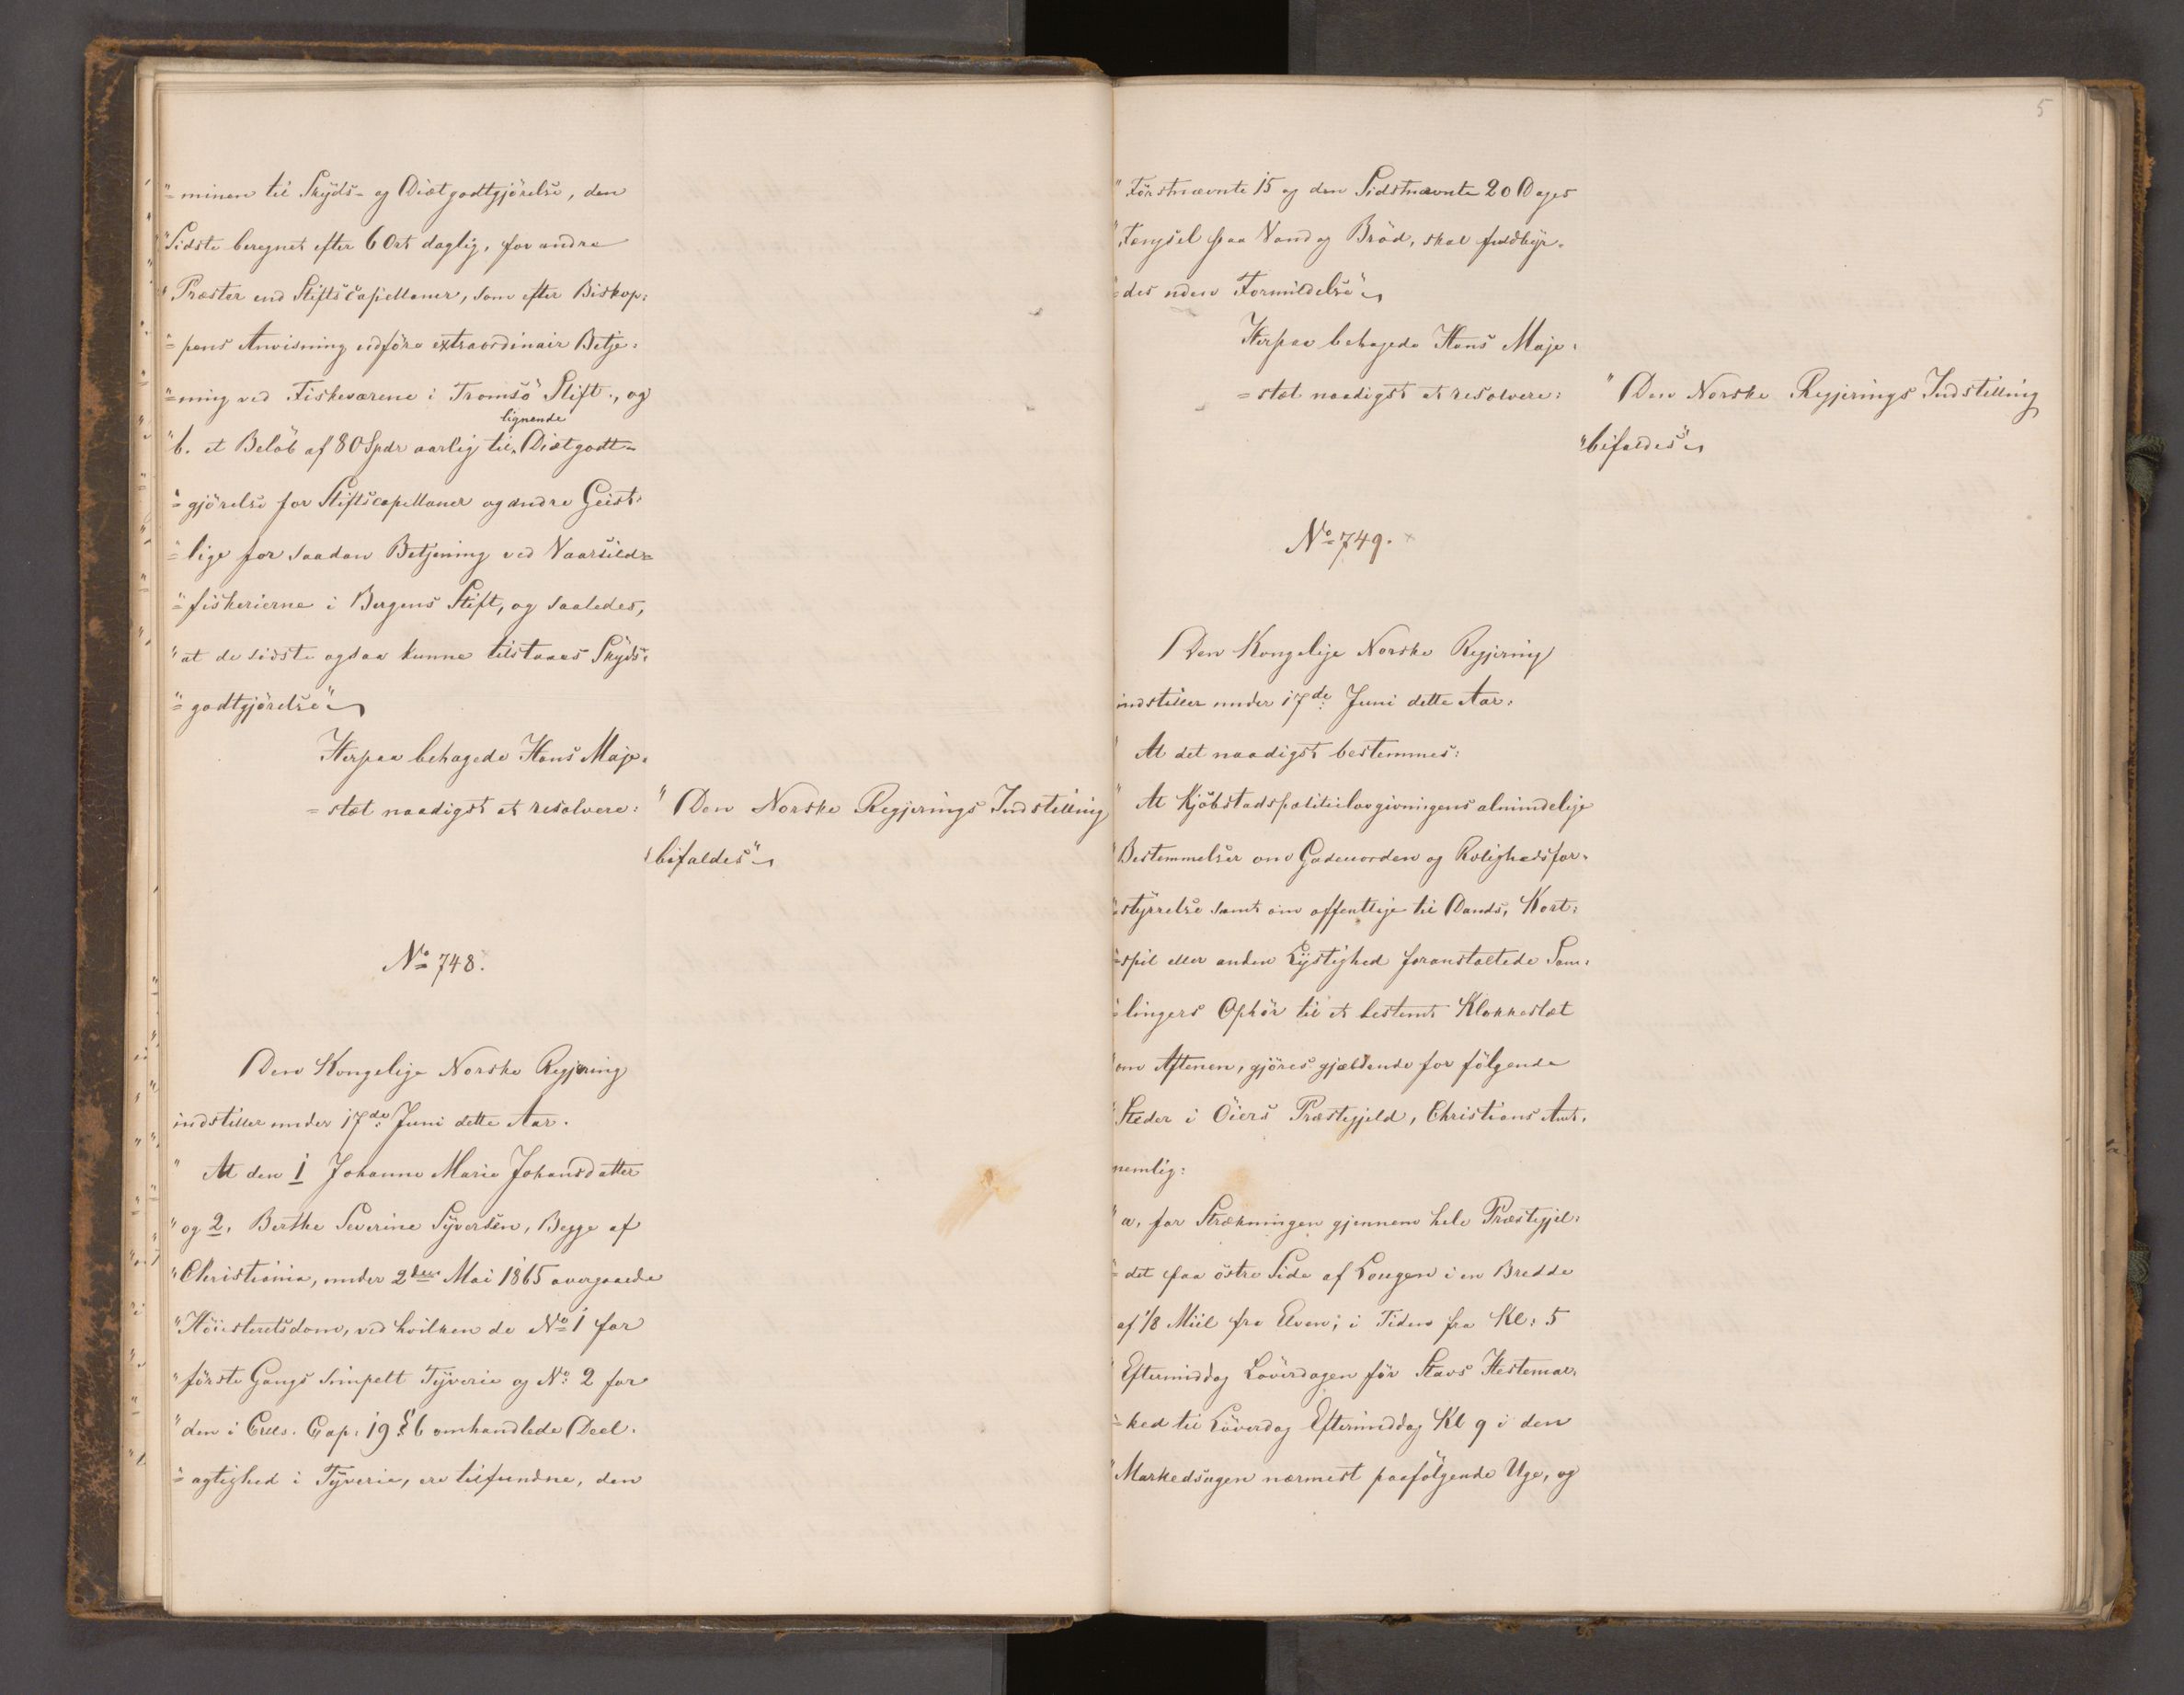 "=minen til Skyds- og Diætgodtgjörelse, den
"Sidste beregnet efter 6 Ort daglig, for andre
"Præster end Stiftscapellaner, som efter Biskop=
"=pens Anvisning udföre extraordinair Betje=
"=ning ved Fiskeværene i Tromsö Stift., og
lignende
"b. et Belöb af 80 Spdr aarlig til Diætgodt=
"=gjörelse for Stiftscapellaner og andre Geist=
"=lige for saadan Betjening ved Vaarsilds=
"=fiskerierne i Bergens Stift, og saaledes,
"at de sidste ogsaa kunne tilstaaes Skyds=
"=godtgjörelse"
Herpaa behagede Hans Maje=
=stæt naadigst at resolvere:
"Den Norske Regjerings Indstilling
"bifaldes"
No 748.
Den Kongelige Norske Regjering
indstiller under 17de Juni dette Aar.
"At den 1 Johanne Marie Johansdatter
"og 2, Berthe Severine Syversen, Begge af
"Christiania, under 2den Mai 1865 overgaaede
"Höiesteretsdom, ved hvilken de No 1 for
"förste Gangs simpelt Tyverie og No 2 for
"den i Crls. Cap. 19 § 6 omhandlede Deel=
"=agtighed i Tyverie, ere tilfundne, den
5
"Förstnævnte 15 og den Sidstnævnte 20 Dages
"Fængsel paa Vand og Bröd, skal fuldbyr=
"=des uden Formildelse"
Herpaa behagede Hans Maje=
=stæt naadigst at resolvere:
"Den Norske Regjerings Indstilling
"bifaldes"
No 749.
Den Kongelige Norske Regjering
indstiller under 17de Juni dette Aar.
"At det naadigst bestemmes:
"At Kjöbstadspolitilovgivningens almindelige
"Bestemmelser om Gadeuorden og Rolighedsfor=
"=styrrelse samt om offentlige til Dands, Kort=
"=spil eller anden Lystighed foranstaltede Sam=
"=lingers Ophör til et bestemt Klokkeslæt
"om Aftenen, gjöres gjældende for fölgende
"Steder i Öiers Præstegjeld, Christians Amt,
nemlig:
"a, for Strækningen gjennem hele Præstegjel=
"=det paa östre Side af Lougen i en Bredde
af 1/8 Miil fra Elven; i Tiden fra Kl: 5
"Eftermiddag Löverdagen för Stavs Hestemar=
"=ked til Löverdag Eftermiddag Kl 9 i den
"Markedsugen nærmest paafölgende Uge, og